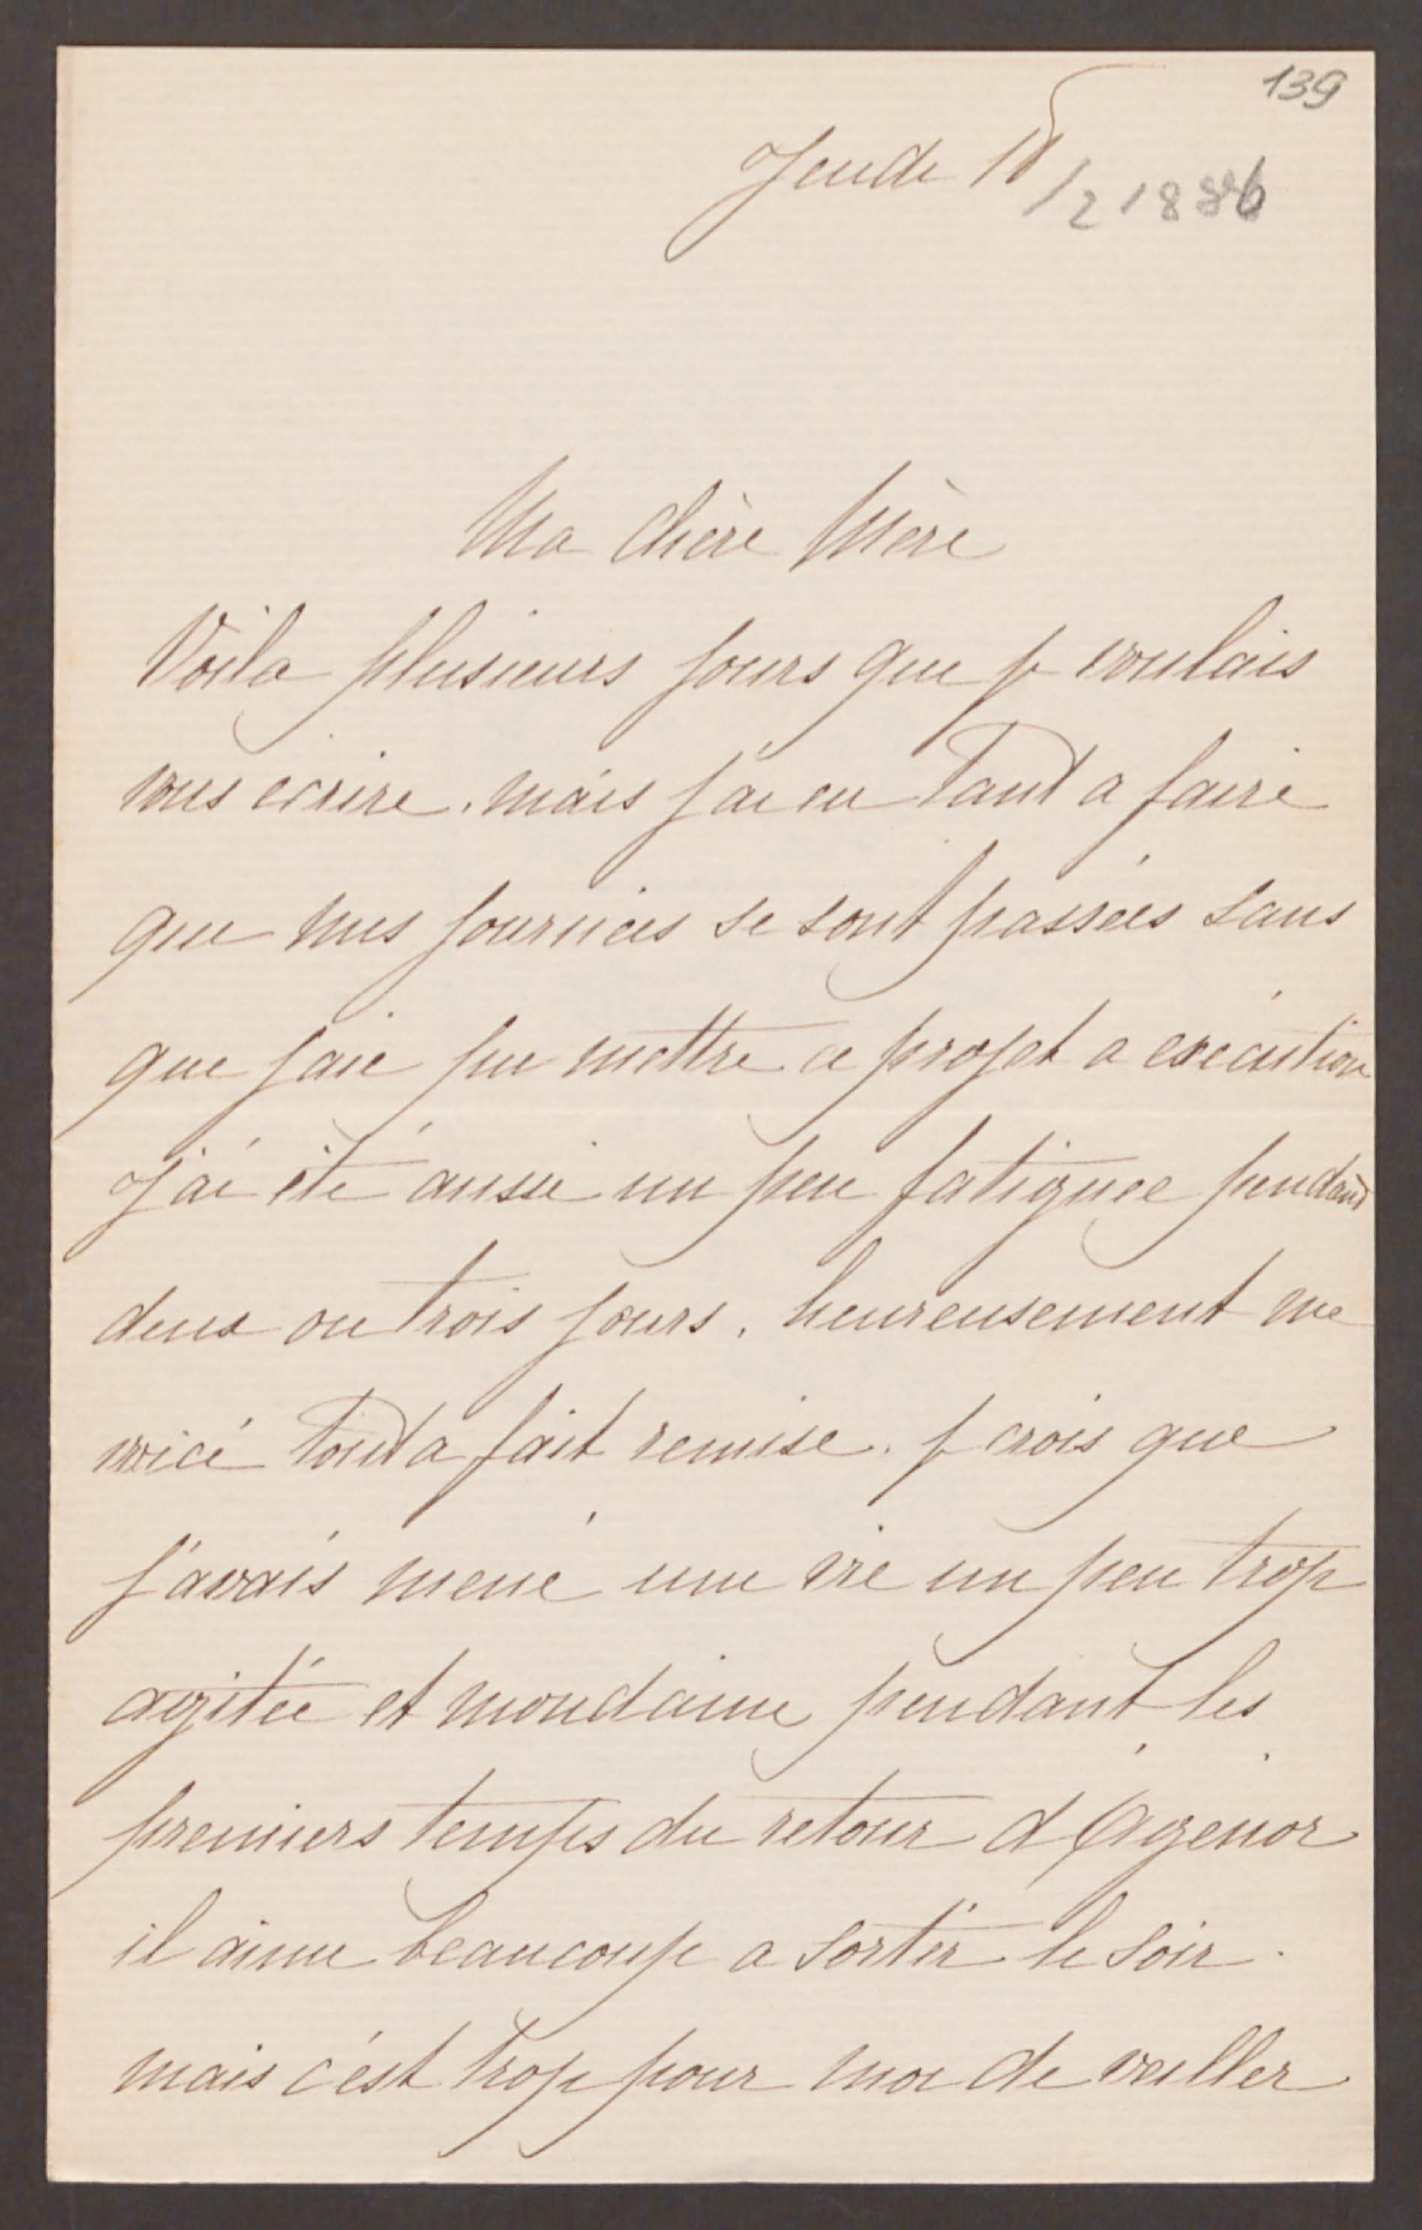 139
Jeudi 18
/2 1886
Ma chère Mère
Voila plusieurs jours que je voulais
vous ecrire. mais j'ai eu tant a faire
que mes journées se sont passées sans
que j'aie pu mettre ce projet a execution
J'ai été aussi un peu fatiguée pendant
deux ou trois jours. heureusement me
voici tout a fait remise. je crois que
j'avais mené une vie un peu trop
agitée et mondaine pendant les
premiers temps du retour d'Agenor
il aime beaucoup a sortir le soir.
mais c'est trop pour moi de veiller